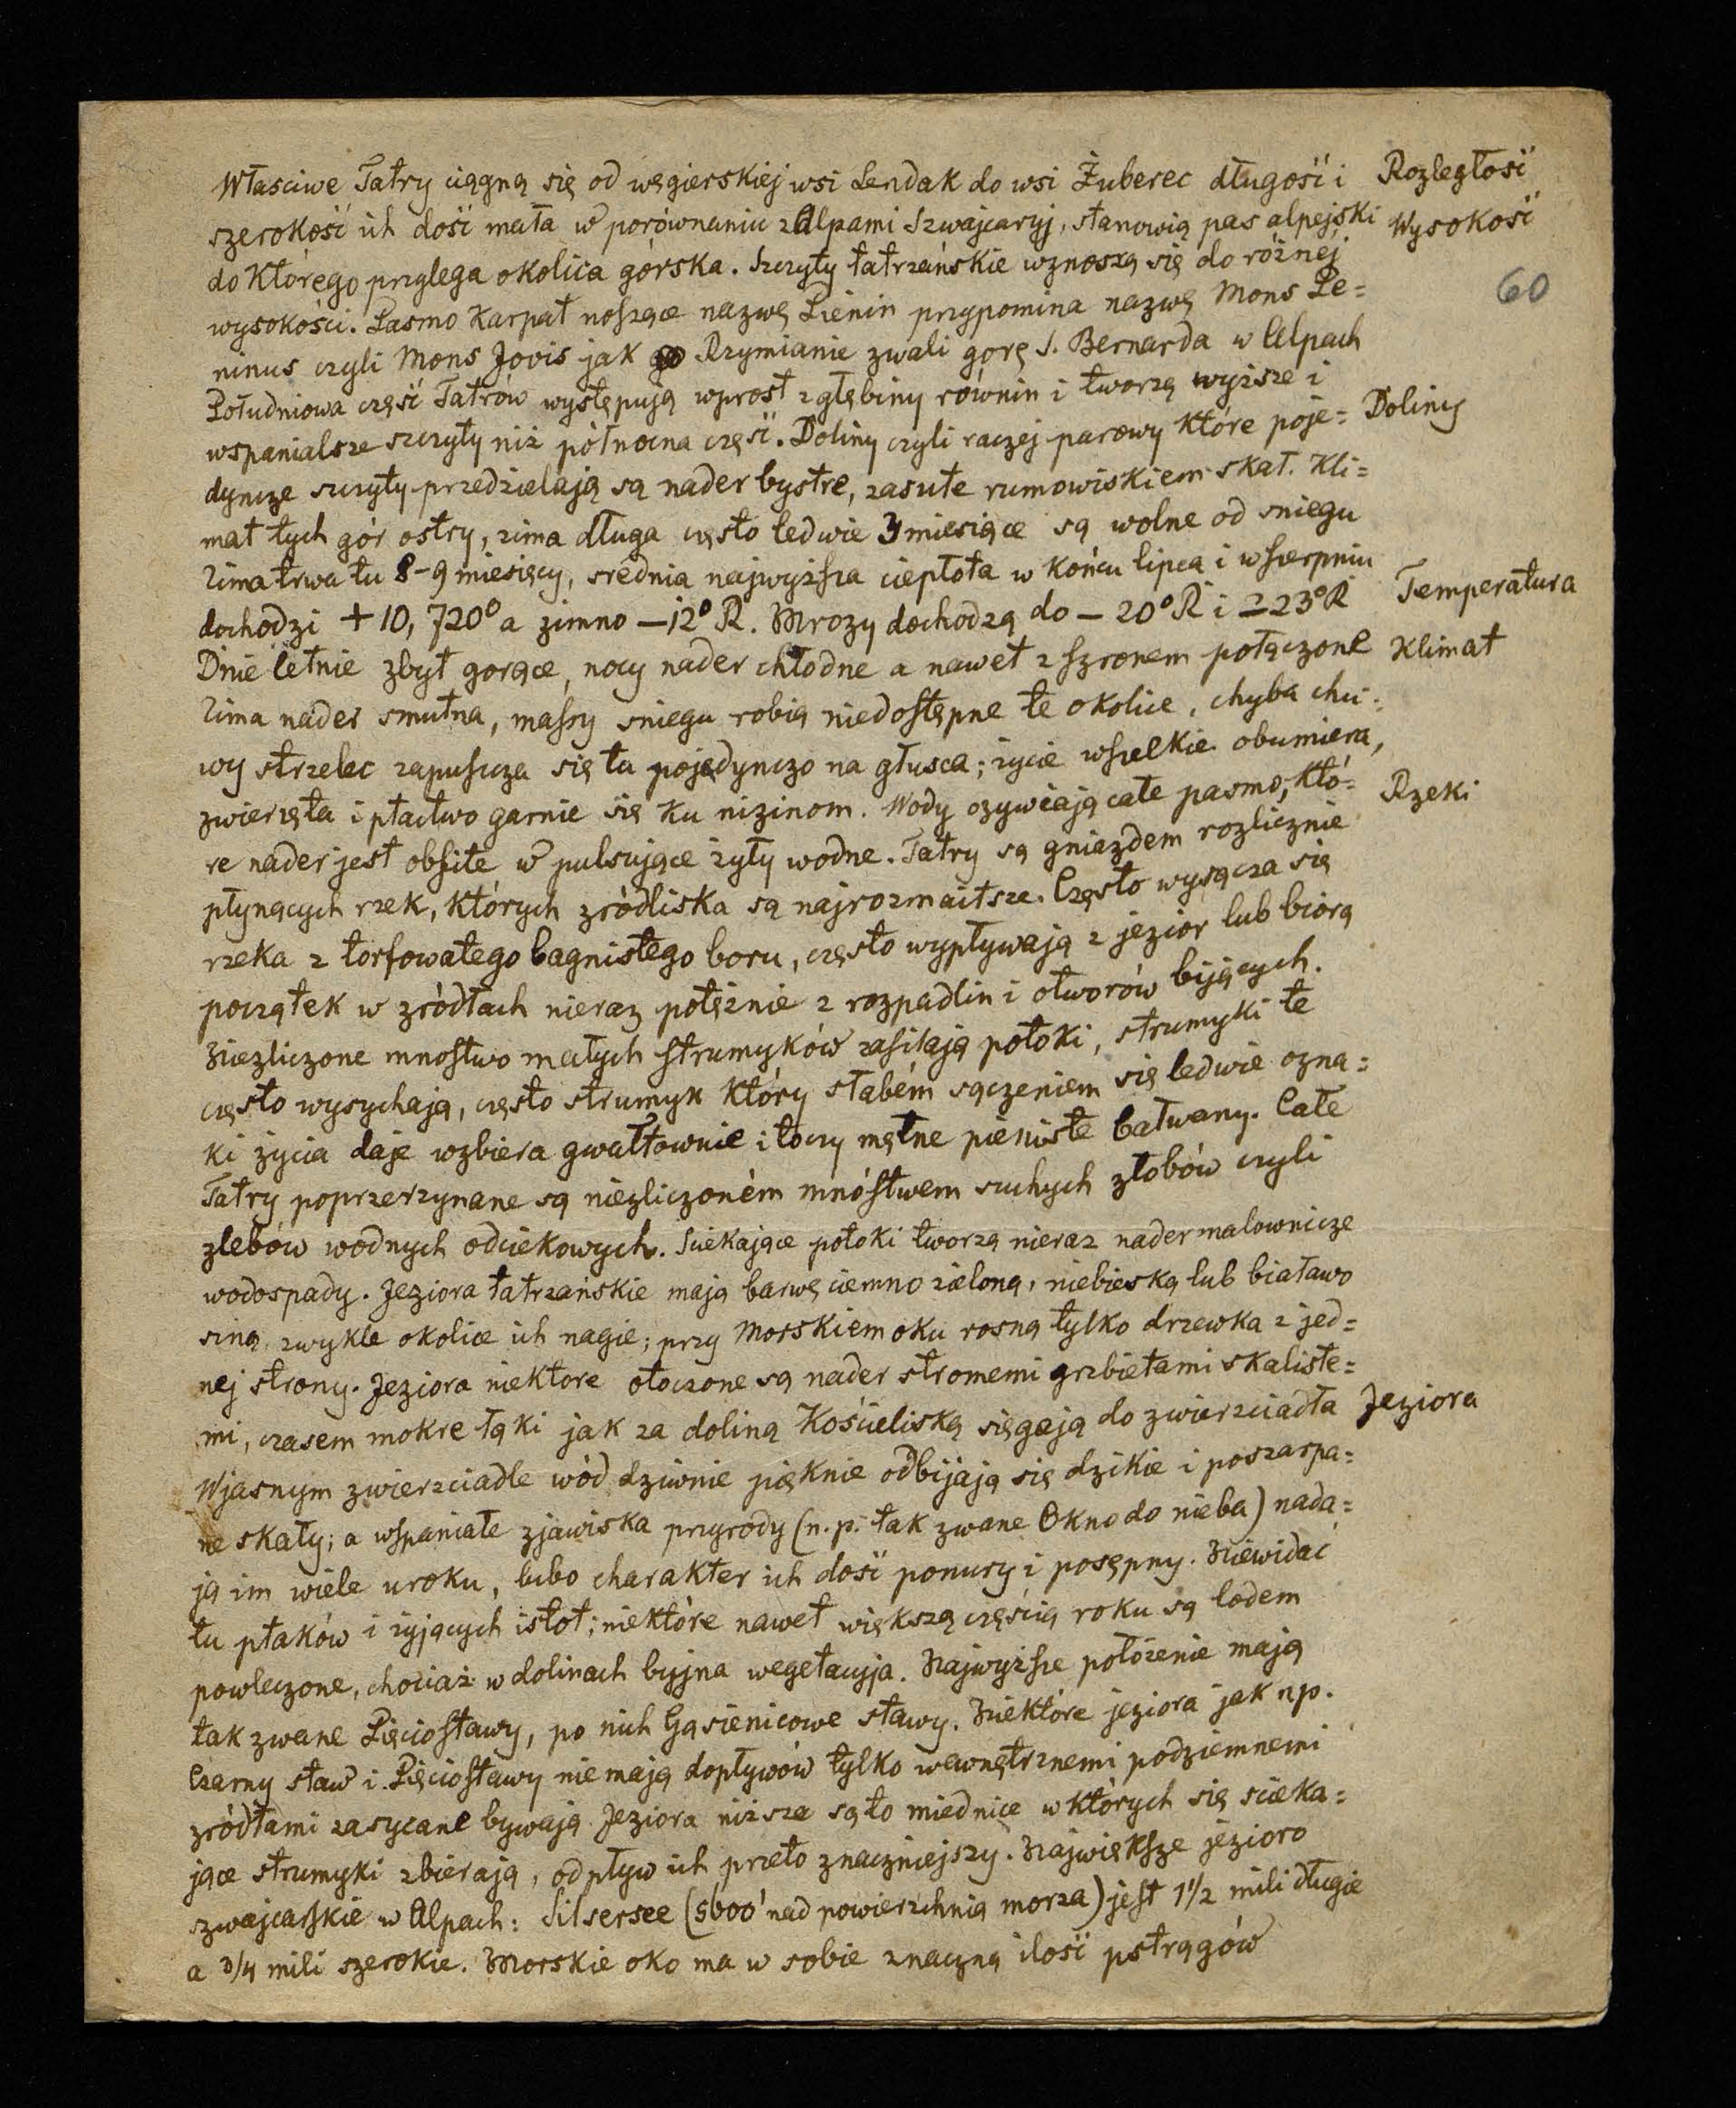 Własciwe Tatry ciągną się od węgierskiej wsi Lendak do wsi Żuberec długość i Rozległość
szerokość ich dość mała w porównaniu z Alpami Szwajcaryj, stanowią pas alpejski Wysokość
do którego przylega okolica górska. Szczyty tatrzańskie wznoszą się do róźnej
60
wysokości. Pasmo Karpat noszące nazwę Pienin przypomina nazwę Mons Pe=
ninus czyli Mons Jovis jak go Rzymianie zwali gorę S. Bernarda w Alpach
Południowa część Tatrów występują wprost z głębiny równin i tworzą wyższe i
wspanialsze szczyty niż północna część. Doliny czyli raczej parowy które poje= Doliny
dyncze szczyty przedzielają są nader bystre, zasute rumowiskiem skał. Kli=
mat tych gór ostry, zima długa często ledwie 3 miesiące są wolne od sniegu
Zima trwa tu 8-9 miesięcy, srednia najwyższa ciepłota w końcu lipca i w sierpniu
dochodzi + 10, 720° a zimno —12° R. Mrozy dochodzą do — 20° R i — 23° R Temperatura
Dnie letnie zbyt gorące, nocy nader chłodne a nawet z szronem połączone Klimat
Zima nader smutna, massy sniegu robią niedostępne te okolice, chyba chci=
wy strzelec zapuszcza się tu pojedynczo na głusca; życie wszelkie obumiera,
zwierzęta i ptactwo garnie się ku nizinom. Wody ozywiają całe pasmo, któ= Rzeki
re nader jest obfite w pulsujące żyły wodne. Tatry są gniazdem rozlicznie
płynących rzek, których zródliska są najrozmaitsze. Często wysącza się
rzeka z torfowatego bagnistego boru, często wypływają z jezior lub biorą
początek w zródłach nieraz potężnie z rozpadlin i otworów bijących.
Niezliczone mnostwo małych strumyków zasilają potoki, strumyki te
często wysychają, często strumyk który słabém sączeniem się ledwie ozna=
ki życia daje wzbiera gwałtownie i toczy mętne pieniste bałwany. Całe
Tatry poprzerzynane są niezliczoném mnóstwem suchych złobów czyli
zlebów wodnych odciekowych. Sciekające potoki tworzą nieraz nader malownicze
wodospady. Jeziora tatrzańskie mają barwę ciemno zieloną, niebieską lub białawo
siną, zwykle okolice ich nagie; przy Morskiem oku rosną tylko drzewka z jed=
nej strony. Jeziora niektore otoczone są nader stromemi grzbietami skaliste=
mi, czasem mokre łąki jak za doliną Kościeliską sięgają do zwierzciadła Jeziora
W jasnym zwierzciadle wód dziwnie pięknie odbijają się dzikie i poszarpa=
ne skały; a wspaniałe zjawiska przyrody (n.p. tak zwane Okno do nieba) nada=
ją im wiele uroku, lubo charakter ich dość ponury i posępny. Niewidać
tu ptaków i żyjących istot; niektóre nawet większą częścią roku są lodem
powleczone, chociaż w dolinach byjna wegetacyja. Najwyższe położenie mają
tak zwane Pięciostawy, po nich Gąsienicowe stawy. Niektóre jeziora jak np.
Czarny staw i Pięciostawy nie mają dopływów tylko wewnętrznemi podziemnemi
zródłami zasycane bywają. Jeziora niższe są to miednice w których się scieka=
jące strumyki zbierają, odpływ ich przeto znaczniejszy. Największe jezioro
szwajcarskie w Alpach: Silsersee (5600' nad powierzchnią morza) jest 1 1/2 mili długie
a 3/4 mili szerokie. Morskie oko ma w sobie znaczną ilość pstrągów